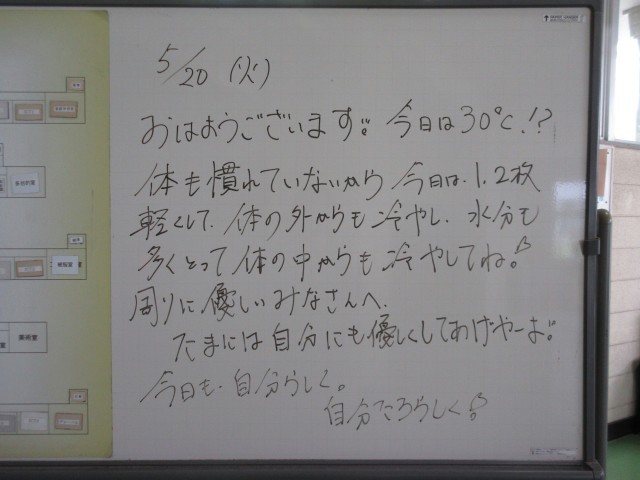 5/20 (火)
おはようございます!! 今日は30℃!?
体も慣れていないから 今日は、1、2枚
軽くして、体の外からも冷やし、水分も
多くとって体の中からも冷やしてね!
周りに優しいみなさんへ、
たまには自分にも優しくしてあげやーよ!!
今日も、自分らしく。
自分たちらしく!
美術室